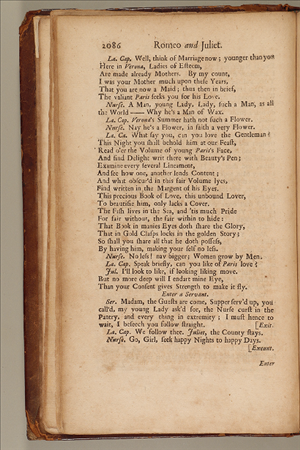 2086 Romeo and Juliet.
La. Cap. Well, think of Marriage now; younger than you
Here in Verona, Ladies of Esteem,
Are made already Mothers. By my count,
I was your Mother much upon these Years,
That you are now a Maid; thus then in brief,
The valiant Paris seeks you for his Love.
Nurse. A Man, young Lady, Lady, such a Man, as all
the World —— Why he's a Man of Wax.
La. Cap. Verona's Summer hath not such a Flower.
Nurse. Nay he's a Flower, in faith a very Flower.
La. Ca. What say you, can you love the Gentleman?
This Night you shall behold him at our Feast,
Read o'er the Volume of young Paris's Face,
And find Delight writ there with Beauty's Pen;
Examine every several Lineament,
And see how one, another lends Content;
And what obscur'd in this fair Volume lyes,
Find written in the Margent of his Eyes.
This precious Book of Love, this unbound Lover,
To beautifie him, only lacks a Cover.
The Fish lives in the Sea, and 'tis much Pride
For fair without, the fair within to hide:
That Book in manies Eyes doth share the Glory,
That in Gold Clasps locks in the golden Story;
So shall you share all that he doth possess,
By having him, making your self no less.
Nurse. No less! nay bigger; Women grow by Men.
La. Cap. Speak briefly, can you like of Paris love?
Jul. I'll look to like, if looking liking move.
But no more deep will I endart mine Eye,
Than your Consent gives Strength to make it fly.
Enter a Servant.
Ser. Madam, the Guests are come, Supper serv'd up, you
call'd, my young Lady ask'd for, the Nurse curst in the
Pantry, and every thing in extremity; I must hence to
wait, I beseech you follow straight. [Exit.
La. Cap. We follow thee. Juliet, the County stays.
Nurse. Go, Girl, seek happy Nights to happy Days.
[Exeunt.
Enter